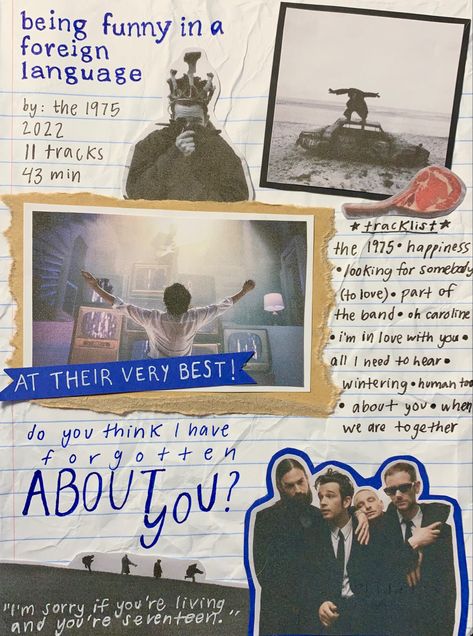 being funny in a
foreign
language
by: the 1975
2022
11 tracks
43 min
★tracklist★
the 1975 • happiness
• looking for somebody
(to love) • part of
the band • oh caroline
• i'm in love with you •
all I need to hear •
wintering • human too
• about you • when
we are together
AT THEIR VERY BEST!
do you think I have
forgotten
ABOUT
YOU?
"I'm sorry if you're living
and you're seventeen."